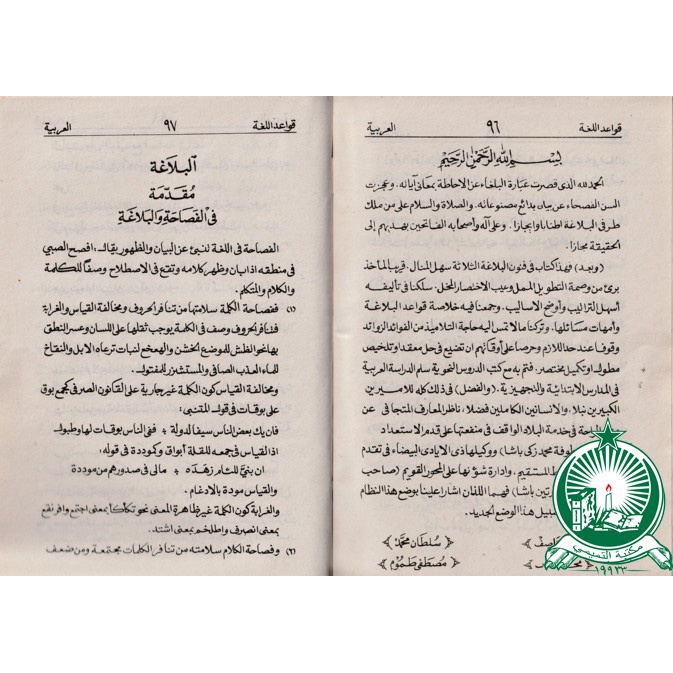 قواعد اللغة ٩٦ العربية
بِسْمِ اللهِ الرَّحْمٰنِ الرَّحِيْمِ
الحمد لله الذى قصرت عبارة البلغاء عن الاحاطة بمعانى آياته. وعجزت
السن الفصحاء عن بيان بدائع مصنوعاته. والصلاة والسلام على من ملك
طرفى البلاغة اطنابا وايجازا. وعلى آله وأصحابه الفاتحين بهديهم إلى
الحقيقة مجازا.
(وبعد) فهذا كتاب فى فنون البلاغة الثلاثة سهل المنال. قريب المأخذ
برئ من وصمة التطويل الممل وعيب الاختصار المخل. سلكنا فى تأليفه
أسهل التراتيب وأوضح الاساليب. وجمعنا فيه خلاصة قواعد البلاغة
وأمهات مسائلها. وتركنا مالا تمس اليه حاجة التلاميذ من الفوائد الزوائد
وقوفا عند حد اللازم وحرصا على أوقاتهم ان تضيع فى حل معقد وتلخيص
مطول او تكميل مختصر. فتم به مع كتب الدروس النحوية سلم الدراسة العربية
فى المدارس الابتدائية والتجهيزية. (والفضل) فى ذلك كله للاميرين
الكبيرين نبلا. والانسانين الكاملين فضلا. ناظر المعارف المتجافى عن
الراحة فى خدمة البلاد الواقف فى منفعتها على قدم الاستعداد
محمد زكى باشا) ووكيلها ذى الايادى البيضاء فى تقدم
المستقيم. وادارة شؤنها على المحور القويم (صاحب
باشا) فهما اللذان اشارا علينا بوضع هذا النظام
هذا الوضع الجديد.
سلطان محمد
مصطفى طموم
مكتبة
قواعد اللغة ٩٧ العربية
البلاغة
مقدمة
فى الفصاحة والبلاغة
الفصاحة فى اللغة تنبئ عن البيان والظهور يقال: افصح الصبي
فى منطقه اذا بان وظهر كلامه وتقع فى الاصطلاح وصفا للكلمة
والكلام والمتكلم.
(١) ففصاحة الكلمة سلامتها من تنافر الحروف ومخالفة القياس والغرابة
فتنافر الحروف وصف فى الكلمة يوجب ثقلها على اللسان وعسر النطق
بها نحو الظش للموضع الخشن والهعخع لنبات ترعاه الابل والنقاخ
للماء العذب الصافى والمستشزر للمفتول.
ومخالفة القياس كون الكلمة غير جارية على القانون الصرفى كجمع بوق
على بوقات فى قول المتنبى:
فان يك بعض الناس سيفا لدولة ففى الناس بوقات لها وطبول
اذ القياس فى جمعه للقلة أبواق وكموددة فى قوله:
ان بنيَّ للئام زهده مالى فى صدورهم من موددة
والقياس مودة بالادغام.
والغرابة كون الكلمة غير ظاهرة المعنى نحو تكأكأ بمعنى اجتمع وافرنقع
بمعنى انصرف واطلخم بمعنى اشتد.
(٢) وفصاحة الكلام سلامته من تنافر الكلمات مجتمعة ومن ضعف